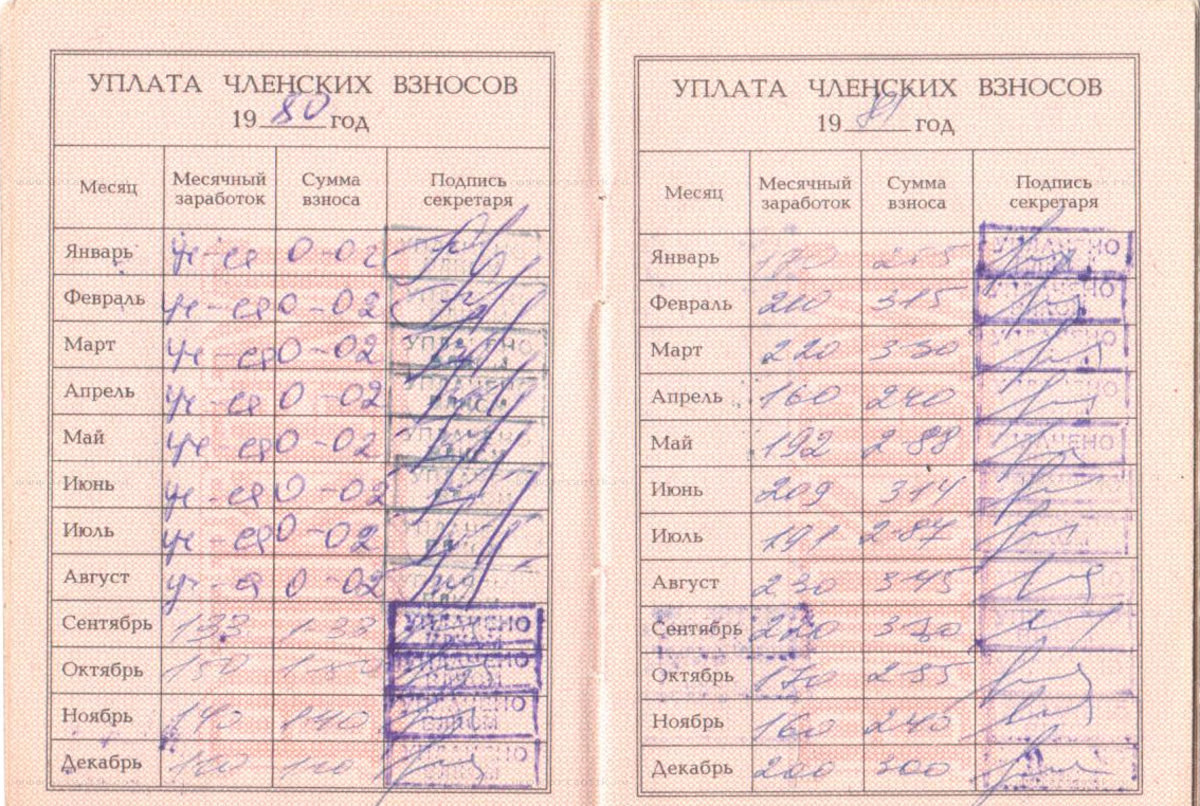 УПЛАТА ЧЛЕНСКИХ ВЗНОСОВ
1980 год
Месяц Месячный заработок Сумма взноса Подпись секретаря
Январь уч-ся 0-02
Февраль уч-ся 0-02
Март уч-ся 0-02 УПЛАЧЕНО
Апрель уч-ся 0-02
Май уч-ся 0-02
Июнь уч-ся 0-02
Июль уч-ся 0-02
Август уч-ся 0-02
Сентябрь 133 1-33 УПЛАЧЕНО
Октябрь 150 1-50 УПЛАЧЕНО
Ноябрь 140 1-40 УПЛАЧЕНО
Декабрь УПЛАЧЕНО
УПЛАТА ЧЛЕНСКИХ ВЗНОСОВ
1981 год
Месяц Месячный заработок Сумма взноса Подпись секретаря
Январь УПЛАЧЕНО
Февраль 210 3-15
Март 220 3-30
Апрель 160 2-40
Май 192 2-88 УПЛАЧЕНО
Июнь 209 3-14
Июль 191 2-87
Август 230 3-45
Сентябрь 220 3-30
Октябрь
Ноябрь 160 2-40
Декабрь 200 3-00